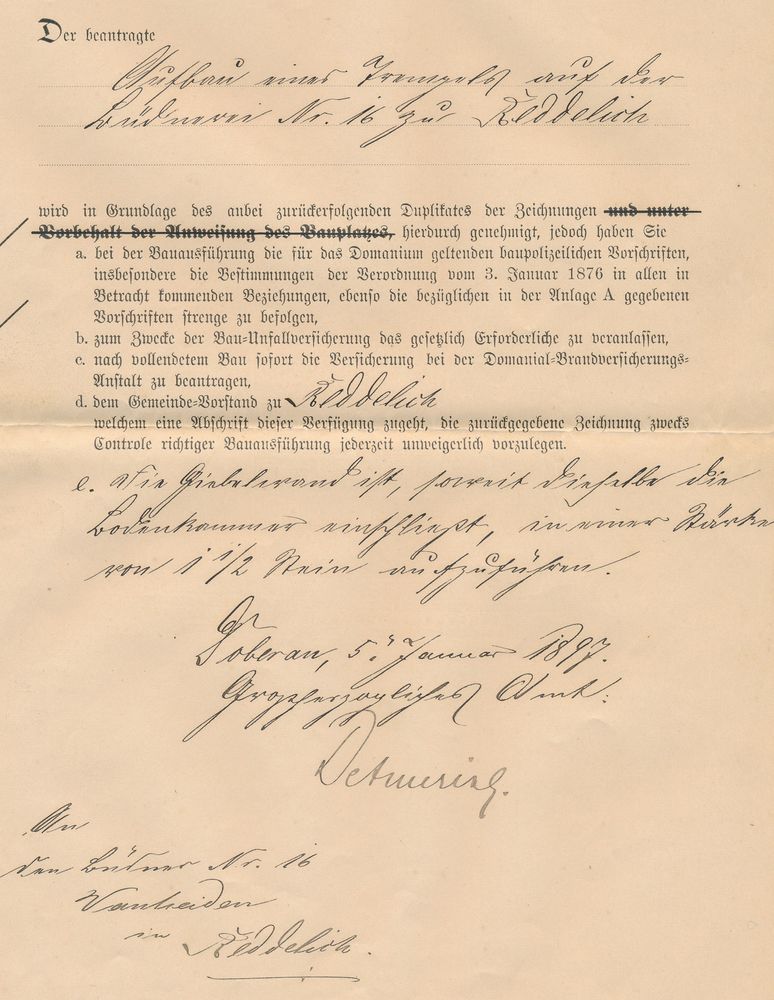 Der beantragte
Aufbau eines Trempels auf der
Büdnerei Nr. 16 zu Reddelich
wird in Grundlage des anbei zurückerfolgenden Duplikates der Zeichnungen und unter
Vorbehalt der Anweisung des Bauplatzes, hierdurch genehmigt, jedoch haben Sie
a. bei der Bauausführung die für das Domanium geltenden baupolizeilichen Vorschriften,
insbesondere die Bestimmungen der Verordnung vom 3. Januar 1876 in allen in
Betracht kommenden Beziehungen, ebenso die bezüglichen in der Anlage A gegebenen
Vorschriften strenge zu befolgen,
b. zum Zwecke der Bau-Unfallversicherung das gesetzlich Erforderliche zu veranlassen,
c. nach vollendetem Bau sofort die Versicherung bei der Domanial-Brandversicherungs-
Anstalt zu beantragen,
d. dem Gemeinde-Vorstand zu Reddelich
welchem eine Abschrift dieser Verfügung zugeht, die zurückgegebene Zeichnung zwecks
Controle richtiger Bauausführung jederzeit unweigerlich vorzulegen.
e. Die Giebelwand ist, soweit dieselbe die
Bodenkammer einschließt, in einer Stärke
von 1 1/2 Stein aufzuführen.
Doberan, 5. Januar 1897.
Großherzogliches Amt.
An
den Büdner Nr. 16
in Reddelich.